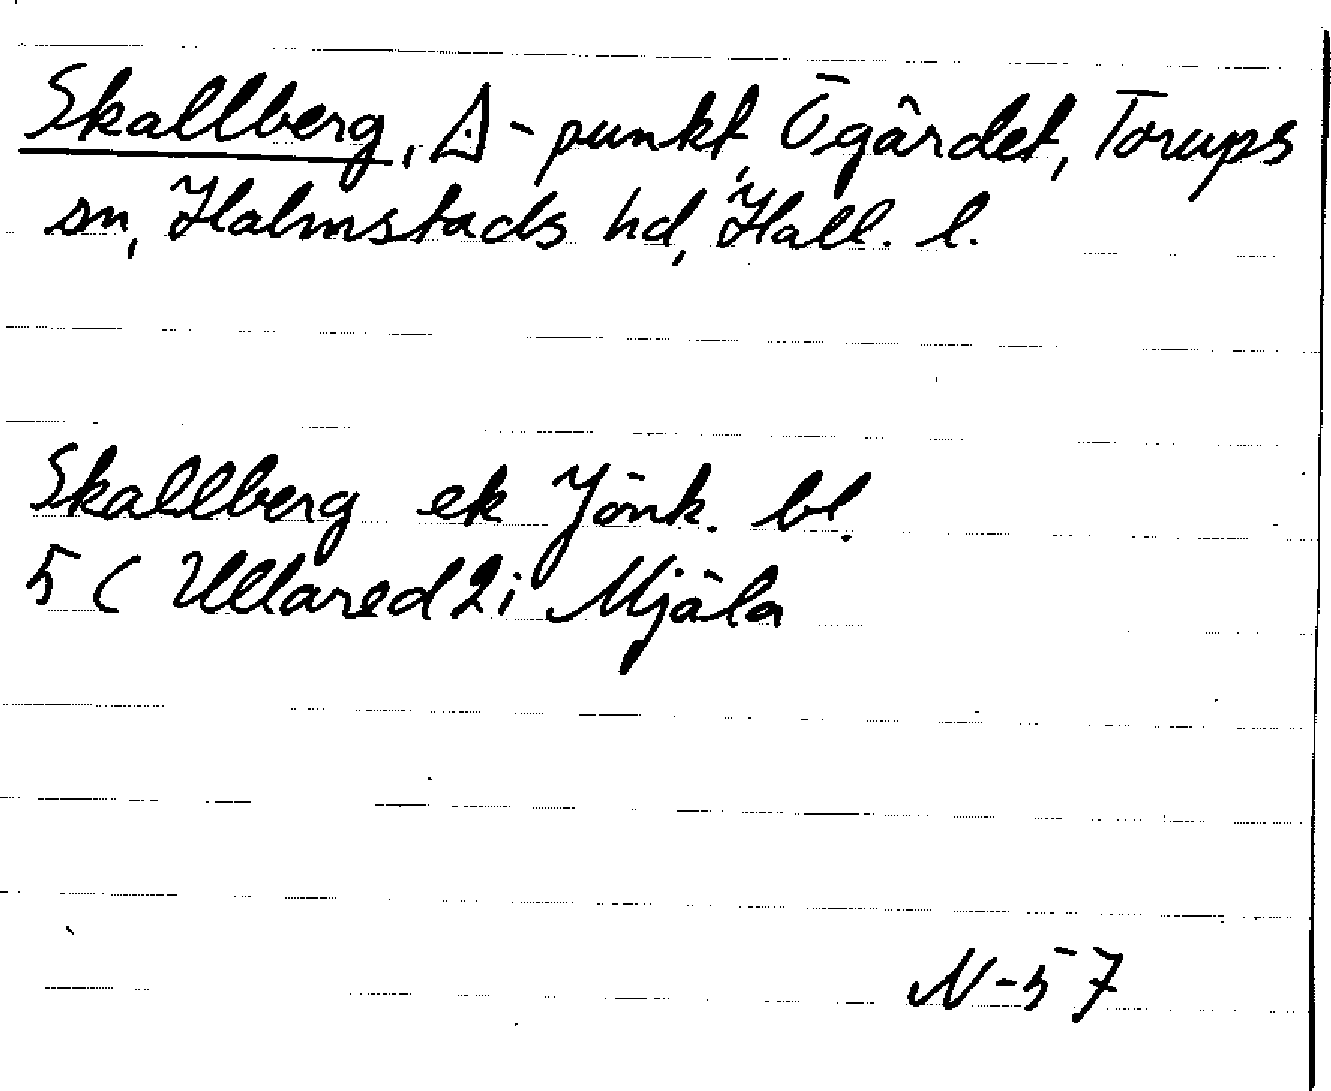 Skallberg, △-punkt, Ögärdet, Torups
sn, Halmstads hd, Hall. l.
Skallberg ek Jönk. bl.
5 C Ullared 2i Mjäla
N-57